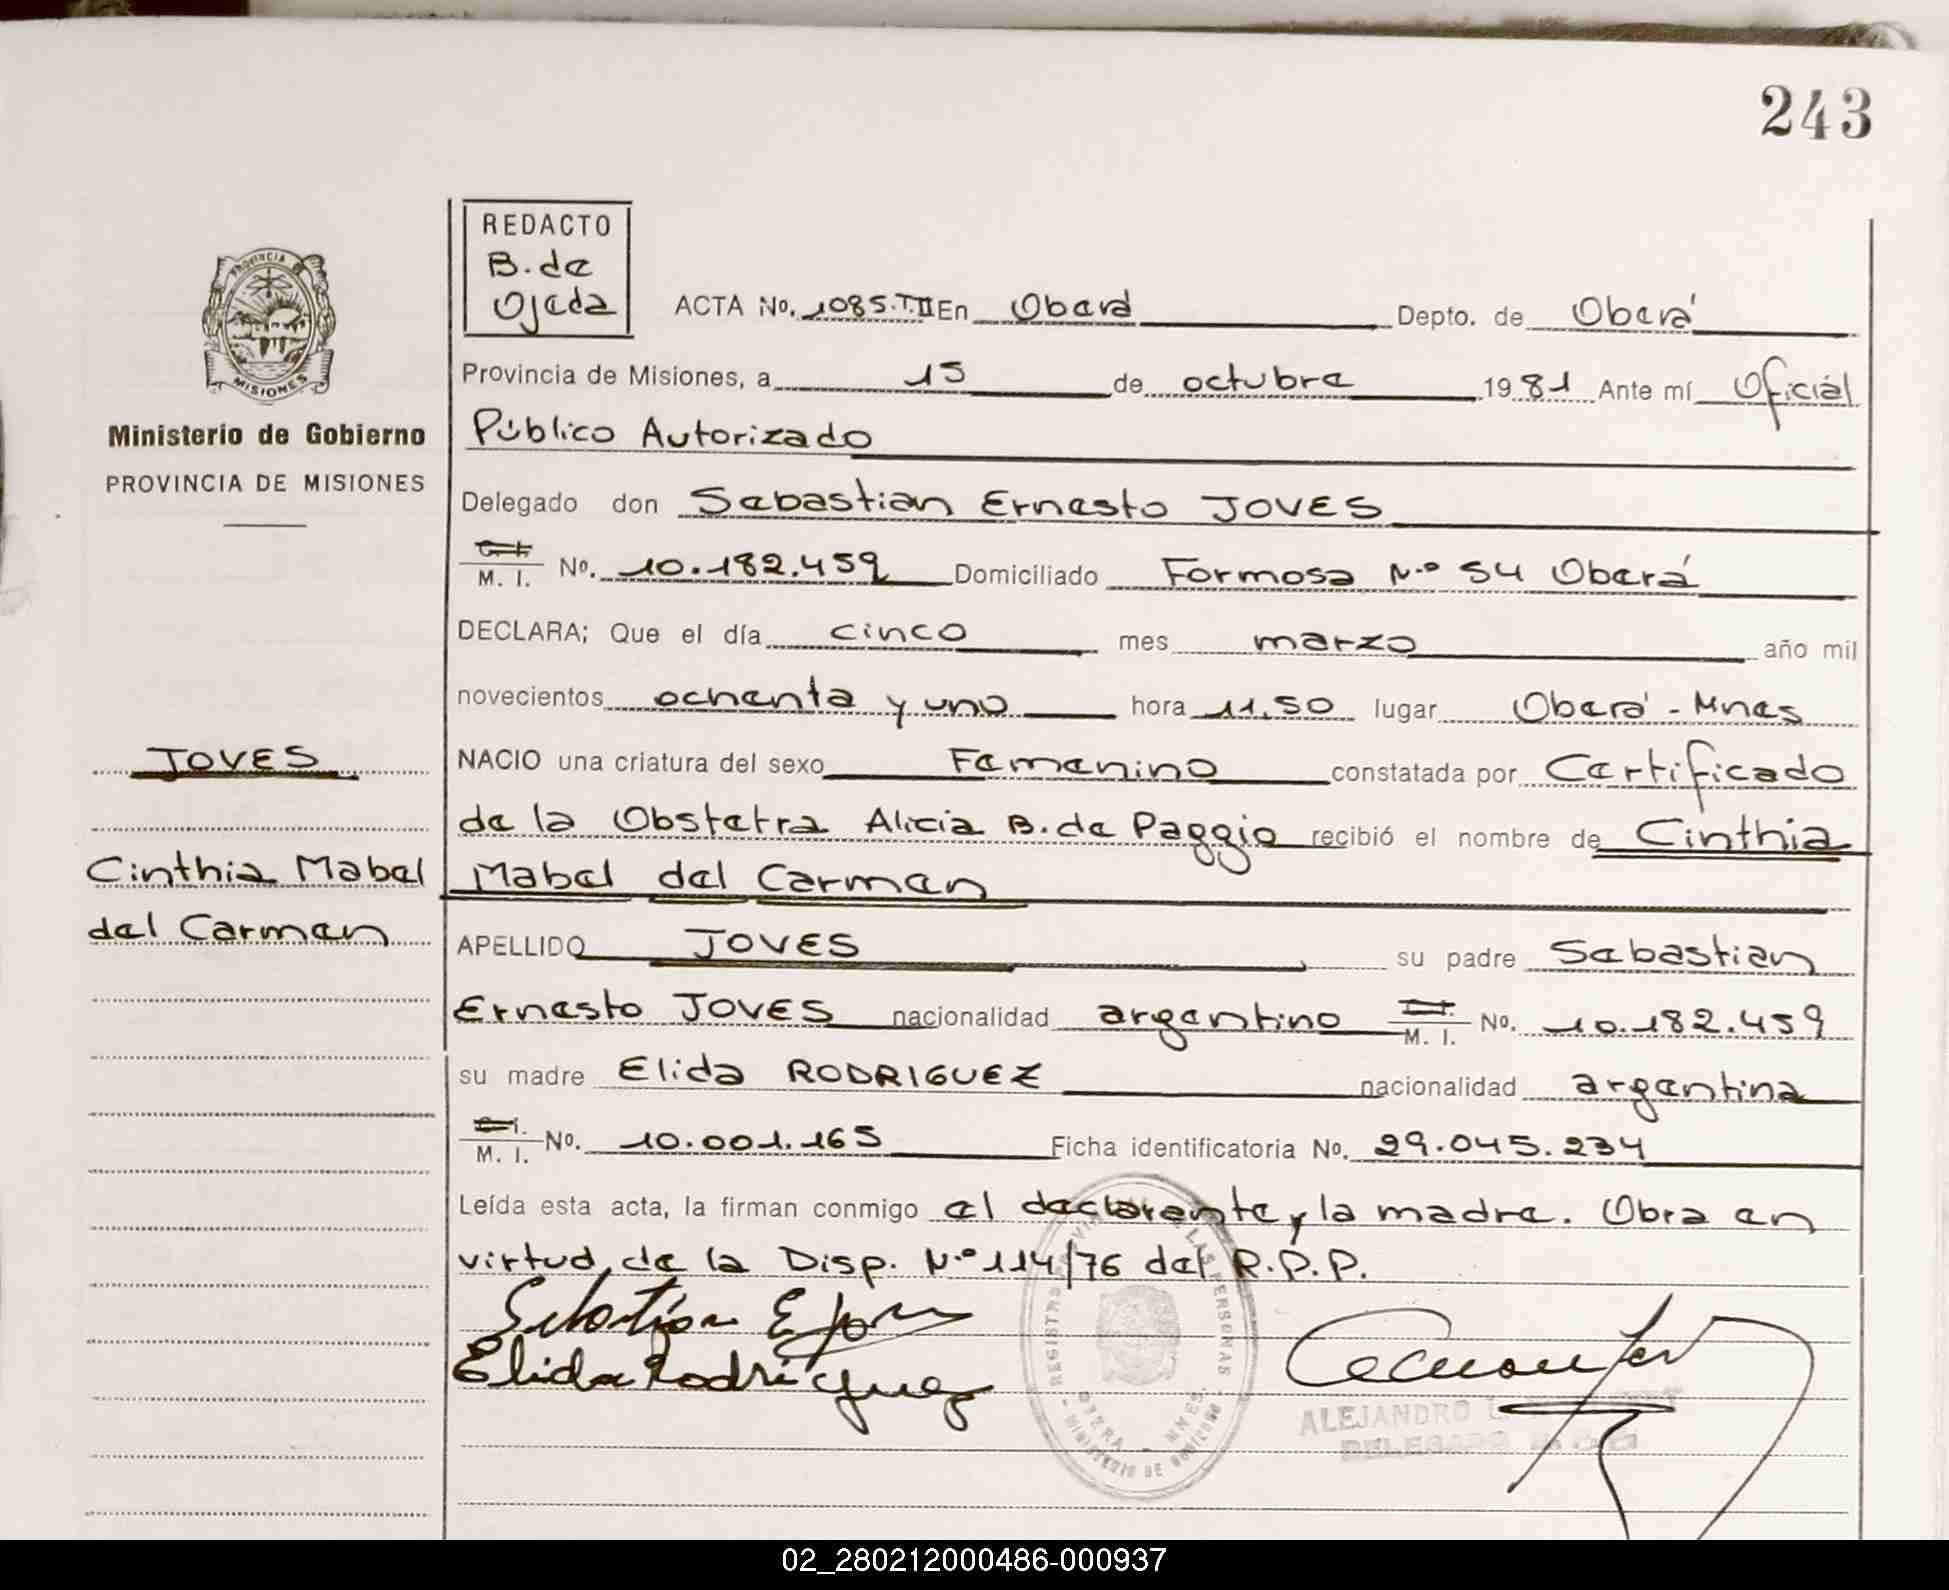 243
REDACTO
B. de
Ojeda
ACTA No. 1085.T.II En Oberá Depto. de Oberá
PROVINCIA DE
MISIONES
Provincia de Misiones, a 15 de octubre 1981 Ante mí Oficial
Ministerio de Gobierno
Público Autorizado
PROVINCIA DE MISIONES
Delegado don Sebastian Ernesto JOVES
M. I. No. 10.182.459 Domiciliado Formosa N.º 54 Oberá
DECLARA; Que el día cinco mes marzo año mil
novecientos ochenta y uno hora 11,50 lugar Oberá - Mnes
JOVES
NACIO una criatura del sexo Femenino constatada por Certificado
de la Obstetra Alicia B. de Paggio recibió el nombre de Cinthia
Cinthia Mabel
Mabel del Carmen
del Carmen
APELLIDO JOVES su padre Sebastian
Ernesto JOVES nacionalidad argentino M. I. No. 10.182.459
su madre Elida RODRIGUEZ nacionalidad argentina
M. I. No. 10.001.165 Ficha identificatoria No. 29.045.234
Leída esta acta, la firman conmigo el declarante y la madre. Obra en
virtud de la Disp. N.º 114/76 del R.P.P.
Sebastián E Joves
Elida Rodríguez
LAS PERSONAS
MINISTERIO DE GOBIERNO
ALEJANDRO
DELEGADO
02_280212000486-000937